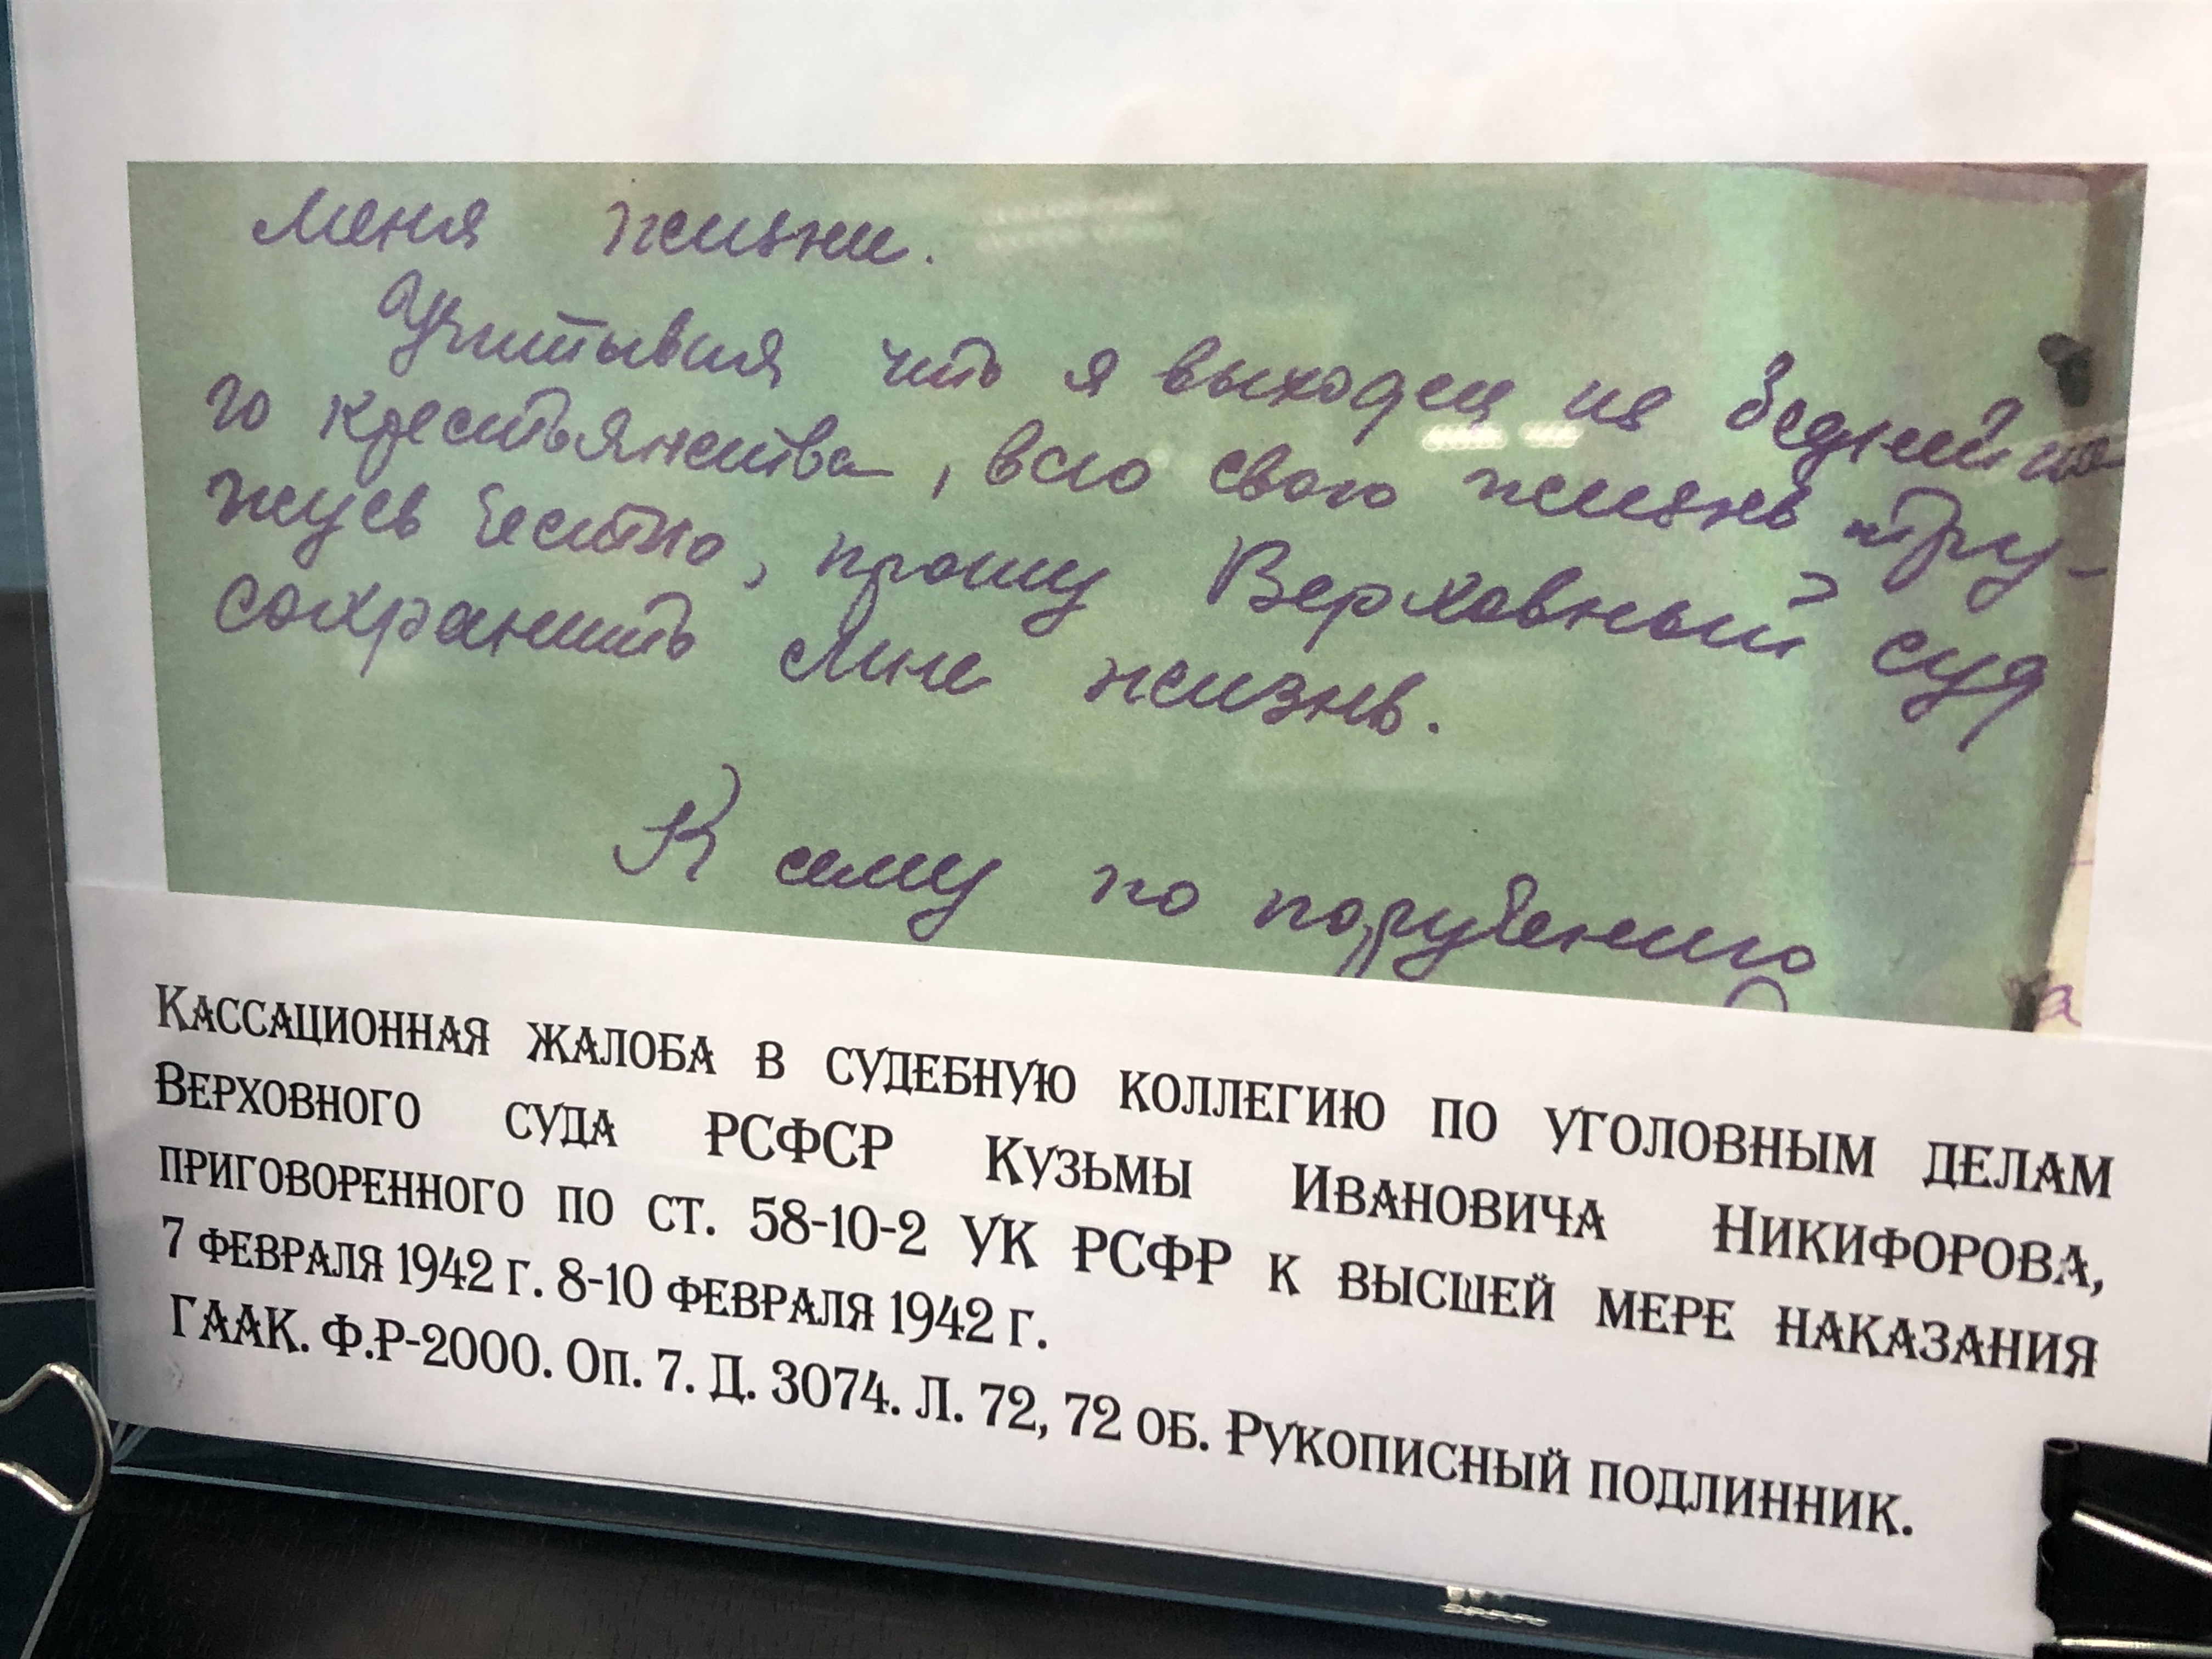 меня жизни.
Учитывая что я выходец из беднейше
го крестьянства, всю свою жизнь тру-
жусь честно, прошу Верховный суд
сохранить мне жизнь.
К сему по поручению
Кассационная жалоба в судебную коллегию по уголовным делам
Верховного суда РСФСР Кузьмы Ивановича Никифорова,
приговоренного по ст. 58-10-2 УК РСФР к высшей мере наказания
7 февраля 1942 г. 8-10 февраля 1942 г.
ГААК. Ф.Р-2000. Оп. 7. Д. 3074. Л. 72, 72 об. Рукописный подлинник.